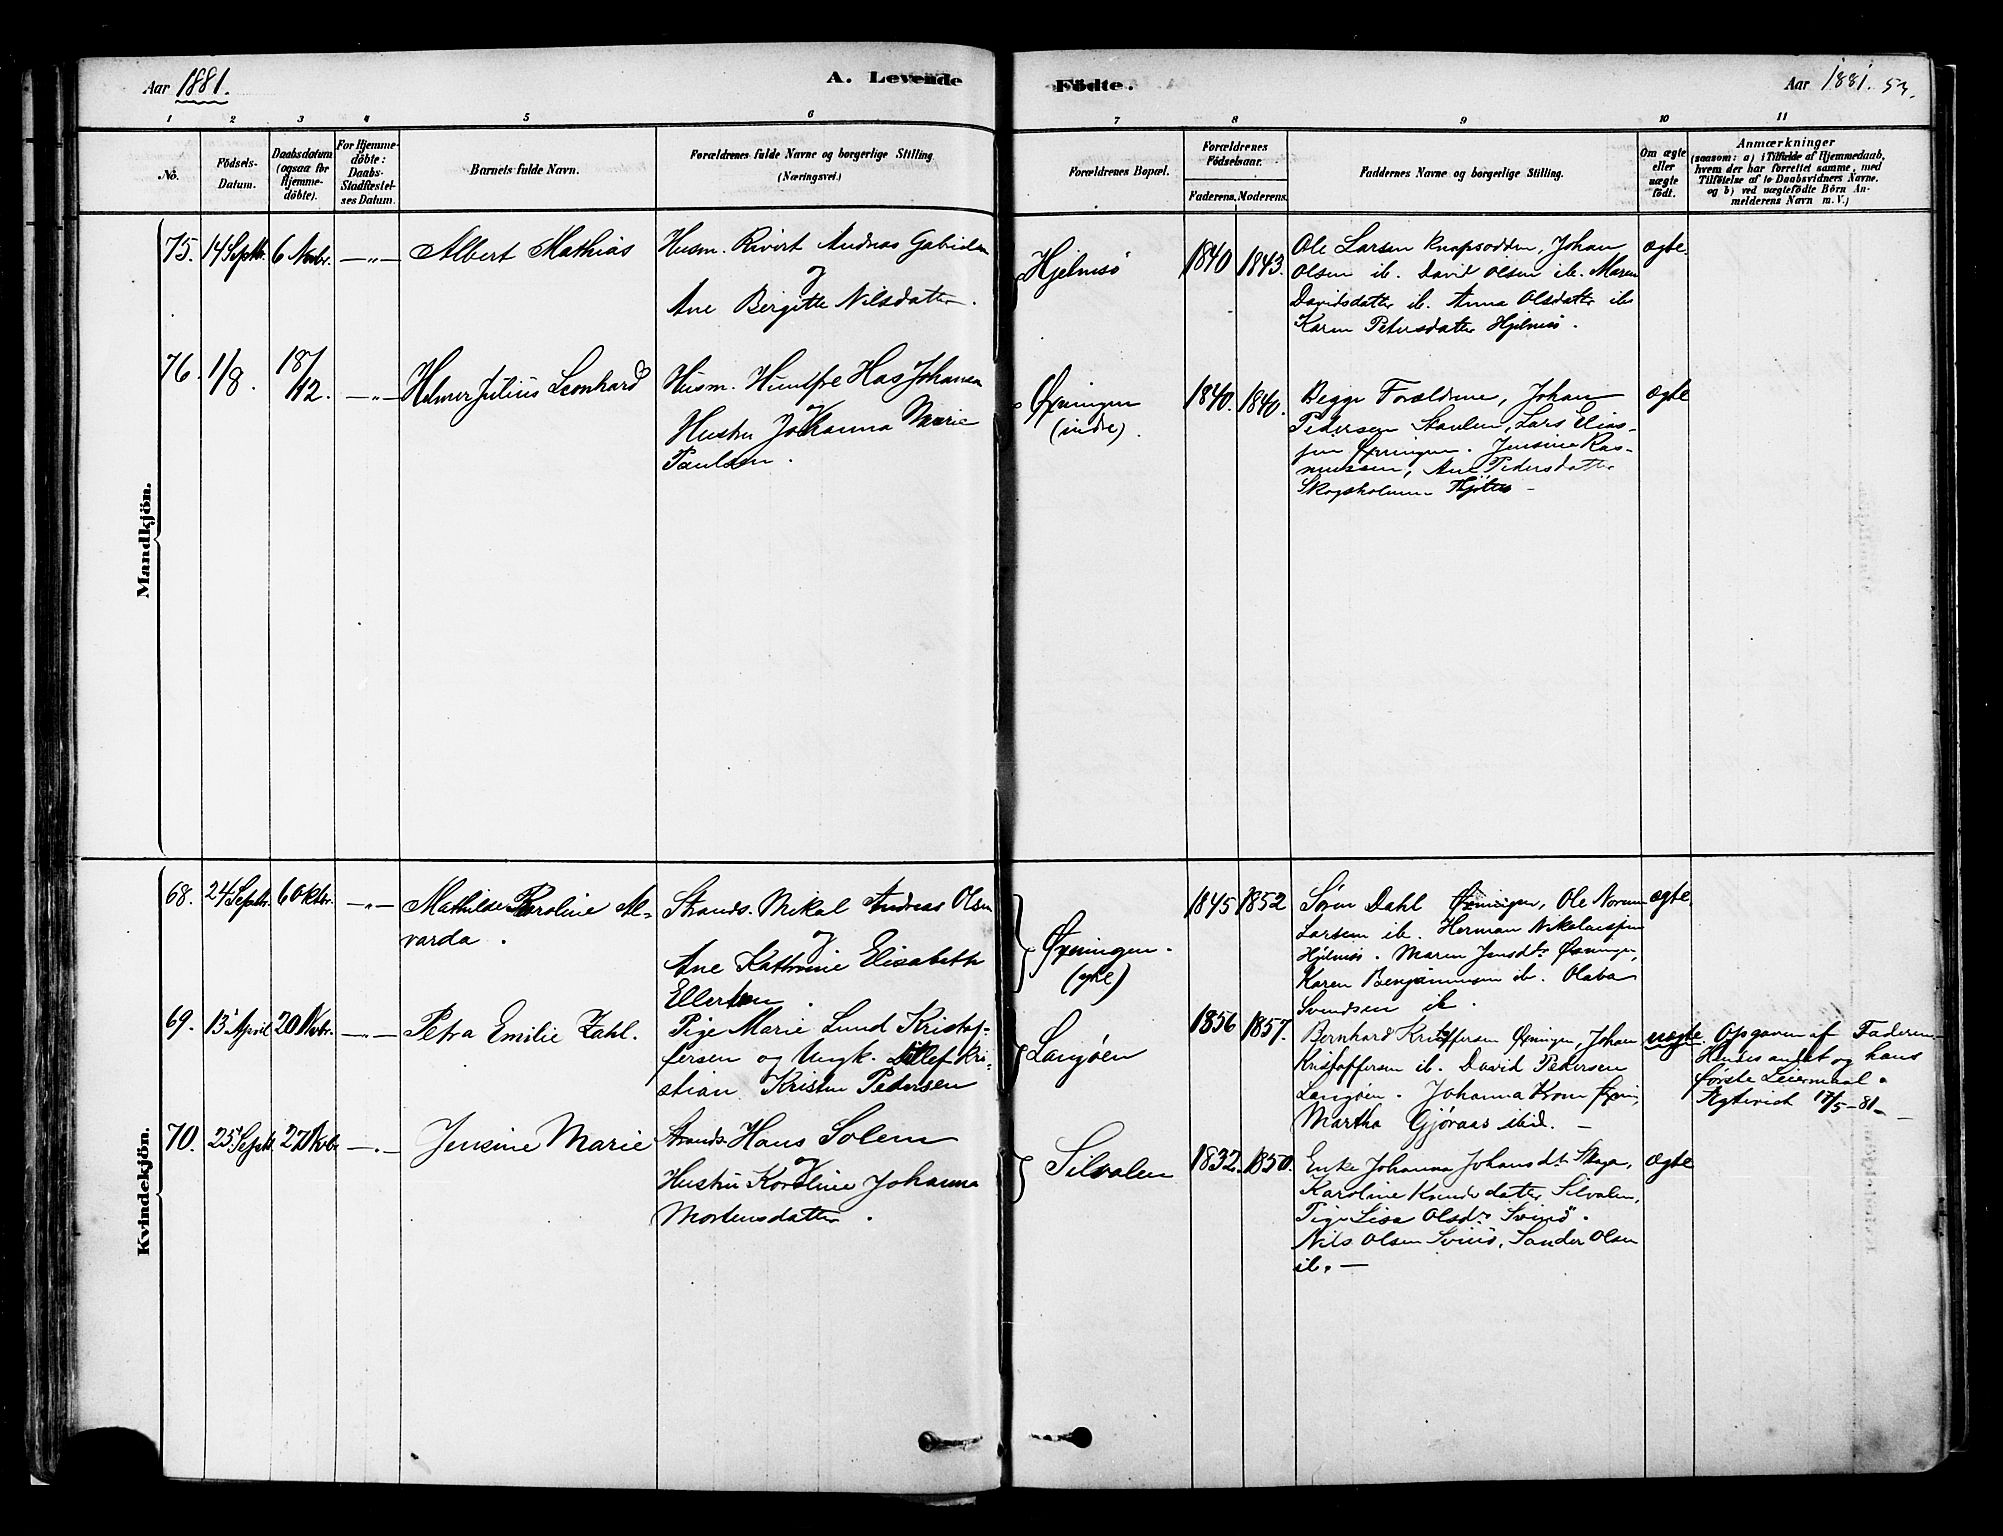 Aar 1881.
A. Levende
Födte.
Aar 1881. 53.
1 2 3 4 5 6 7 8 9 10 11
No.
Födsels-Datum.
Daabsdatum (ogsaa for Hjemmedöbte).
For Hjemmedöbte: Daabs-Stadfæstelses Datum.
Barnets fulde Navn.
Forældrenes fulde Navne og borgerlige Stilling
(Næringsvei.)
Forældrenes Bopæl.
Forældrenes Födselsaar.
Faderens. Moderens.
Faddernes Navne og borgerlige Stilling.
Om ægte eller uægte födt.
Anmærkninger
(saasom: a) i Tilfælde af Hjemmedaab,
hvem der har forrettet samme, med
Tilföielse af to Daabsvidners Navne.
og b) ved uægtefödte Börn Anmelderens Navn m. V.)
Mandkjön.
75. 14 Septbr. 6 Novbr. —"— Albert Mathias
Husm. Rivert Andreas
og
Ane Birgitte Nilsdatter.
Hjelmsö
1840 1843.
Ole Larsen Knapsodden, Johan
Olsen ib. David Olsen ib. Maren
Davidsdatter ib. Anna Olsdatter ib.
Karen Petersdatter Hjelmsö.
ægte.
76. 1/8. 18/12. —"— Helmer Julius Leonhard
Husm. Humfre Has Johansen
og
Hustru Johanna Marie
Paulsen.
Öxningen
(indre).
1840. 1840.
Begge Forældrene, Johan
Pedersen Staulen, Lars Elias-
sen Öxningen. Jensine Ras-
mussen, Ane Pedersdatter
Skogsholmen
ægte
Kvindekjön.
68. 24 Septbr. 6 Oktbr. —"— Mathilde Karoline Al-
varda.
Strands. Mikal Andreas Olsen
og
Ane Kathrine Elisabeth
Ellertsen.
Öxningen.
(ytre)
1845 1852
Sören Dahl Öxningen, Ole Norum
Larsen ib. Herman Nikolaisen
Hjelmsö. Maren Jensdtr Öxningen,
Karen Benjaminsen ib. Olava
Svendsen ib.
ægte.
69. 13 April 20 Novbr. —"— Petra Emilie Zahl.
Pige Marie Lund Kristof-
fersen og Ungk. Detlef Kri-
stian Kristen Pedersen
Langöen
1856 1857.
Bernhard Kristoffersen Öxningen, Johan
Kristoffersen ib. David Pedersen
Langöen. Johanna Krone Öxnin,
Martha Gjöraas ibid. —
uægte.
Opgaven af Faderen
Hendes andet og hans
første Leiermaal.
17/5-81. —
70. 25 Septb. 27 Novbr —"— Jensine Marie
Strands. Hans Solem
og
Hustru Karoline Johanna
Mortensdatter.
Silvalen
1832. 1850.
Enke Johanna Johansdtr Skaga,
Karoline Knudsdatter Silvalen,
Pige Lisa Olsdtr Svinö.
Nils Olsen Svinö, Sander Olsen
ib. —
ægte